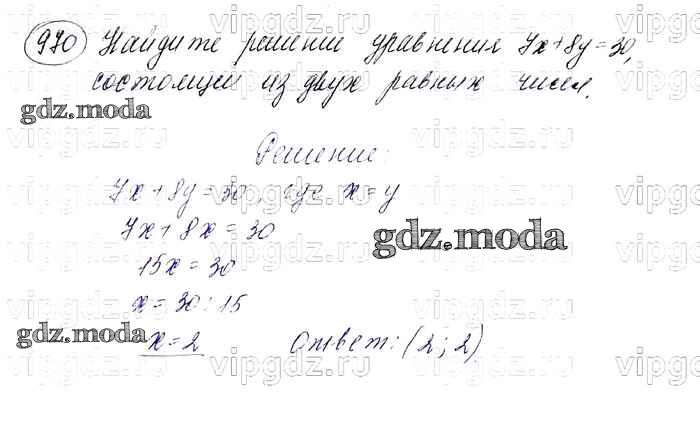 970 Найдите решение уравнения 7x+8y=30,
состоящее из двух равных чисел.
gdz.moda
Решение:
7x+8y=30, где x=y
7x+8x=30
gdz.moda
15x=30
x=30:15
gdz.moda
x=2 Ответ: (2;2)
vipgdz.ru